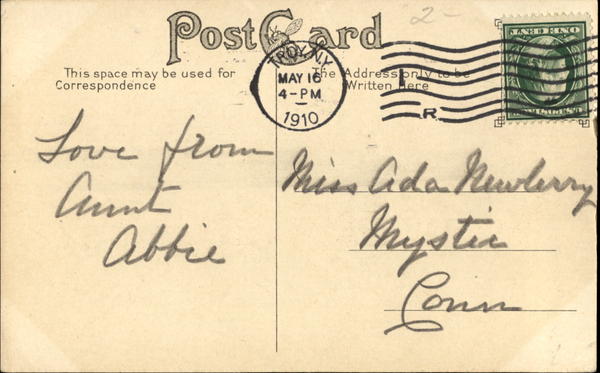 2-
Post Card
TROY, N.Y.
MAY 16
4-PM
1910
R
This space may be used for
Correspondence
The Address only to be
Written Here
Love from
Aunt
Abbie
Miss Ada Newberry
Mystic
Conn